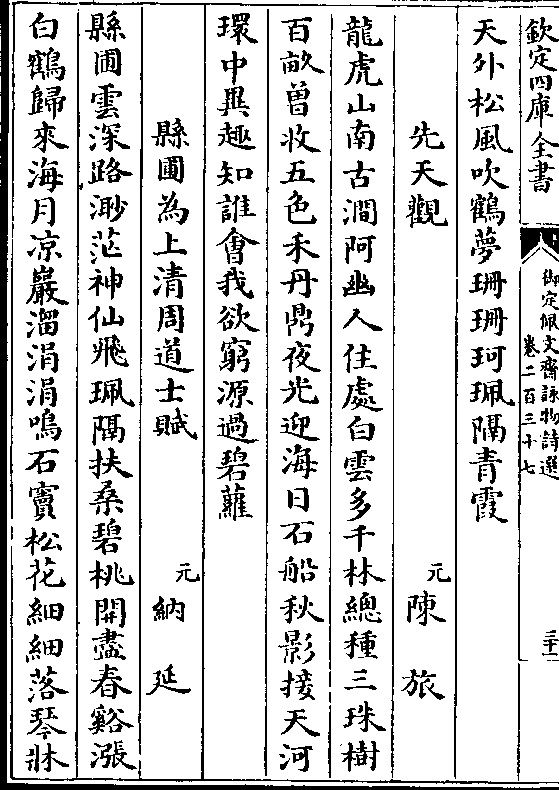 欽定四庫全書
御定佩文齋詠物詩選
卷二百三十七
三十
天外松風吹鶴夢珊珊珂珮隔青霞
先天觀
元陳旅
龍虎山南古澗阿幽人住處白雲多千林總種三珠樹
百畝曽收五色禾丹鼎夜光迎海日石船秋影接天河
環中異趣知誰會我欲窮源過碧蘿
縣圃為上清周道士賦
元納延
縣圃雲深路渺茫神仙飛珮隔扶桑碧桃開盡春谿漲
白鶴歸來海月凉巖溜涓涓鳴石竇松花細細落琴牀